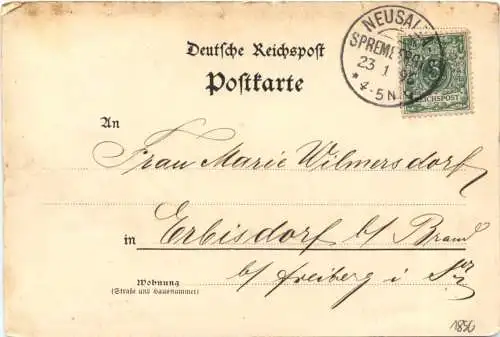 NEUSALZA
SPREMBERG
23 1 96
* 4-5 N
REICHSPOST
Deutsche Reichspost
Postkarte
An
Frau Marie Wilmersdorf
in Erbisdorf b/ Brand
Wohnung
(Straße und Hausnummer)
b/ freiberg i
1896